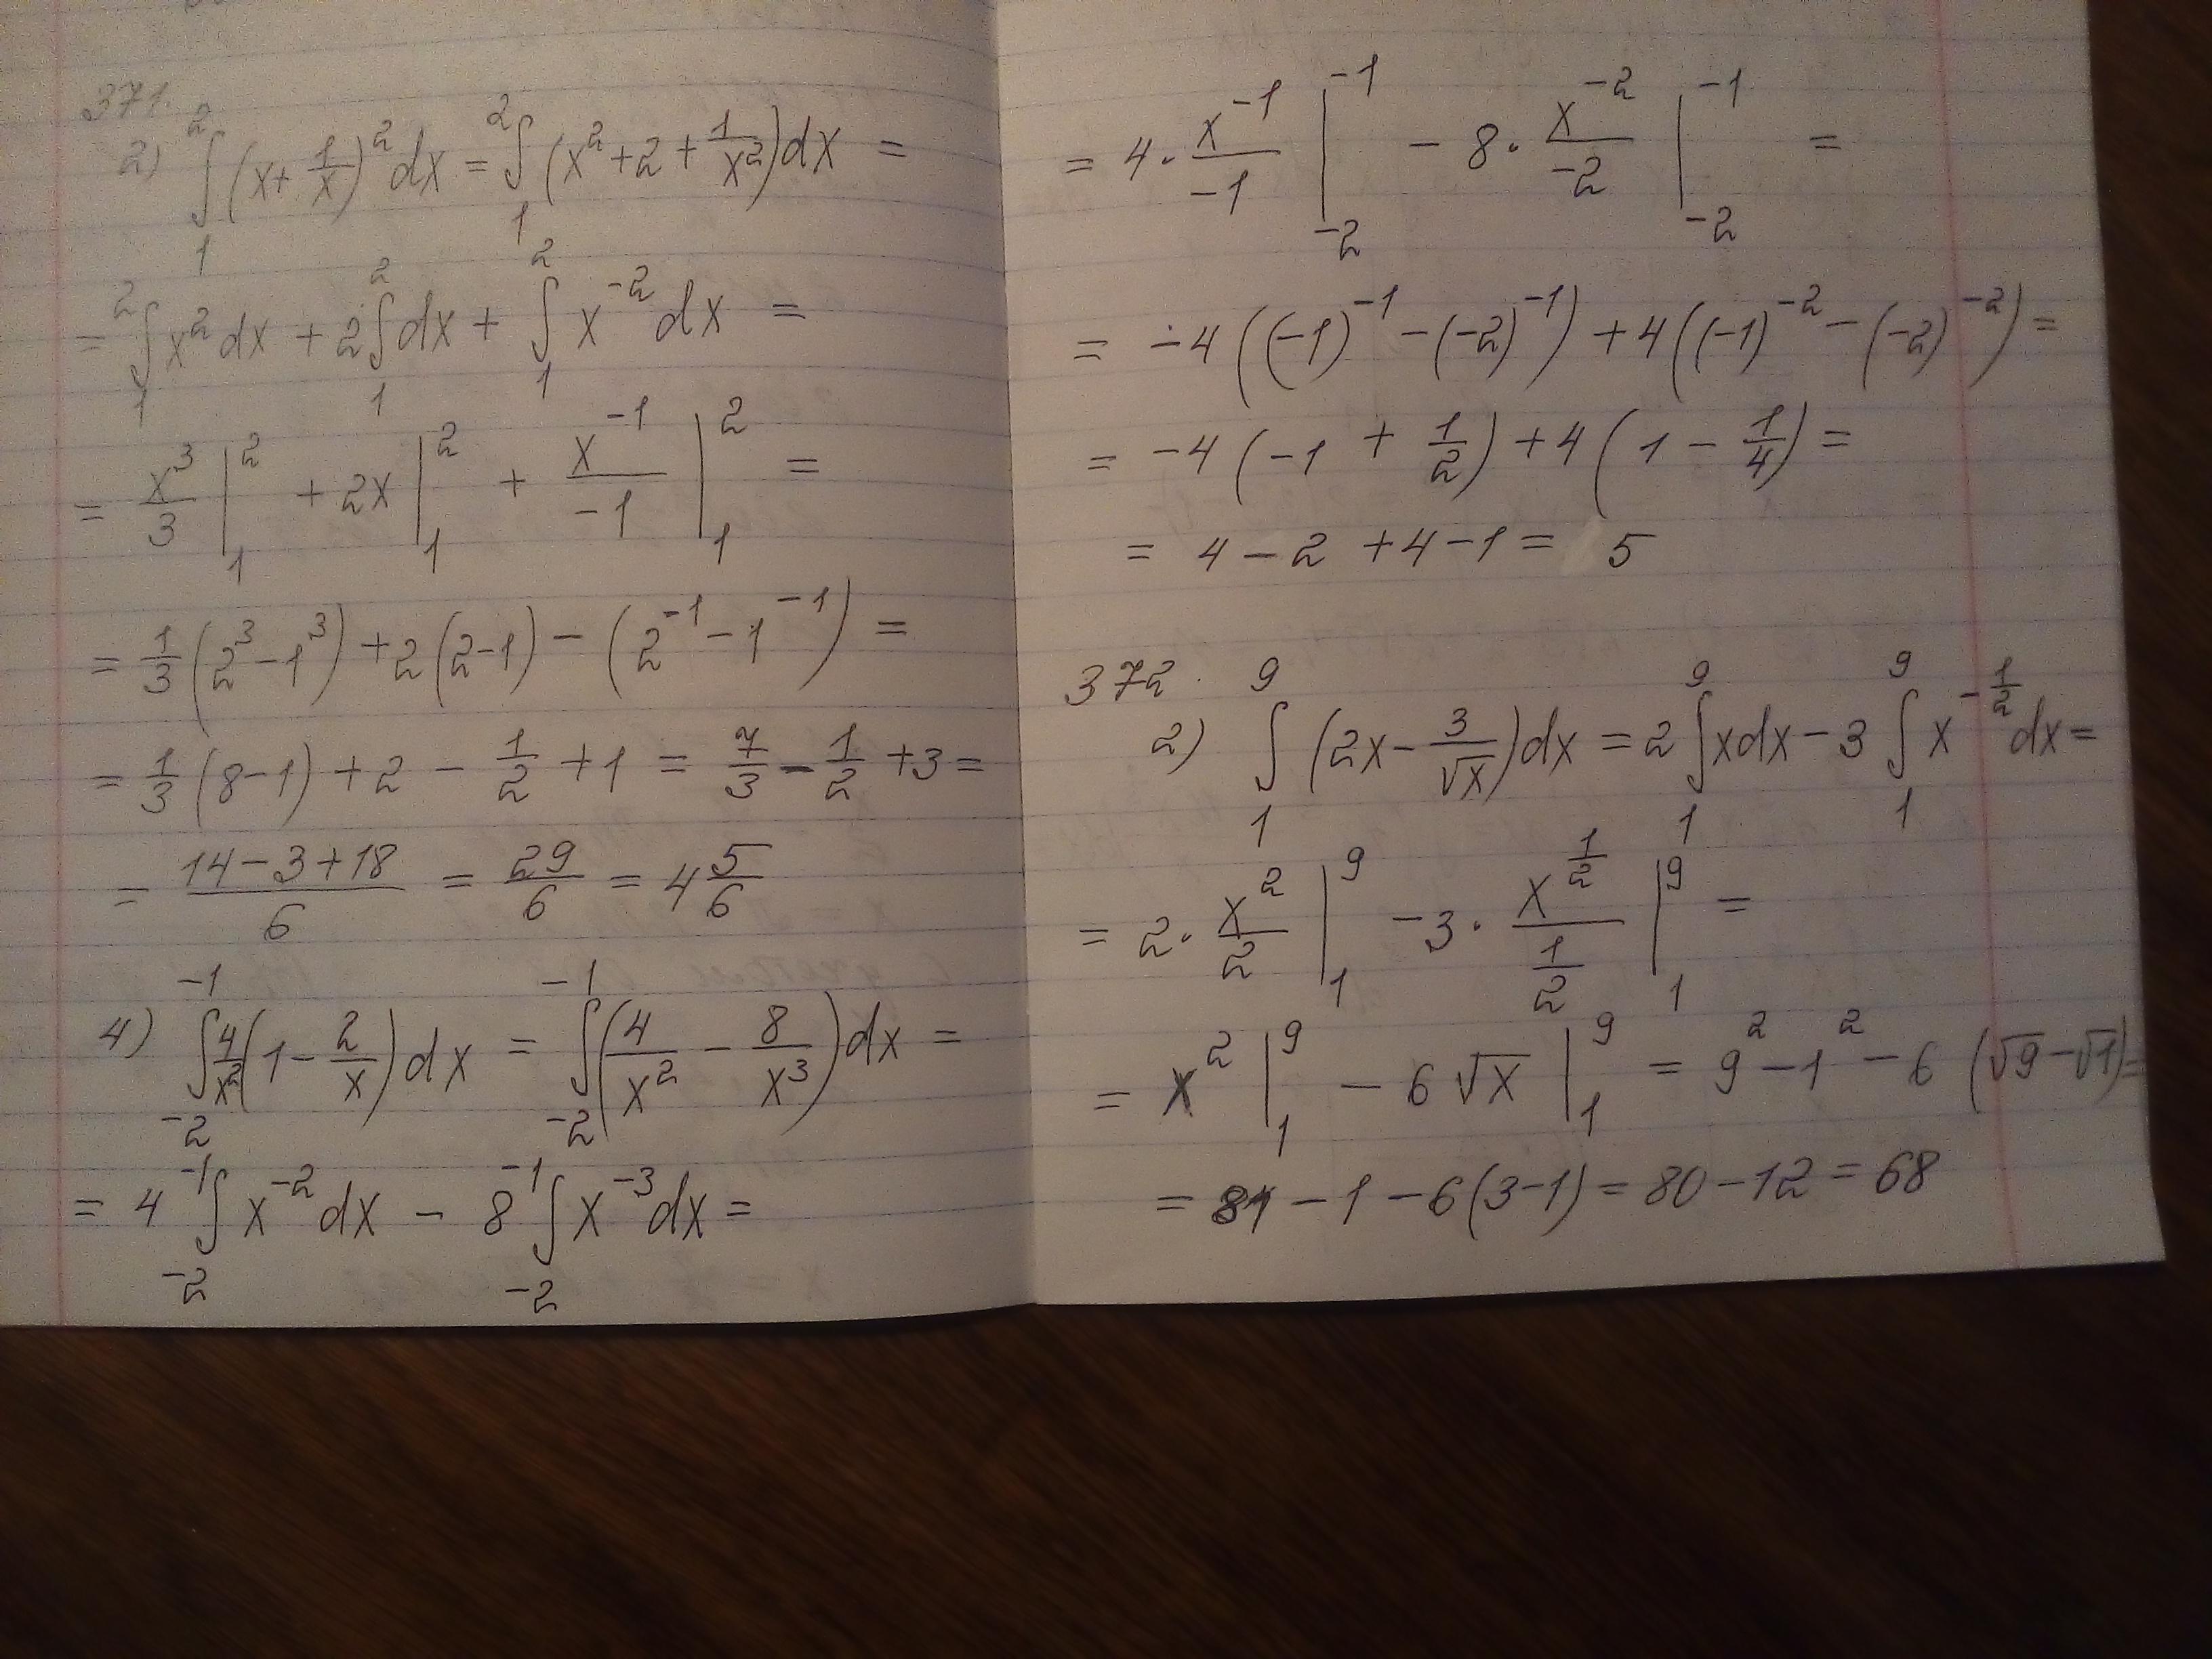 371.
2) ∫₁² (x + 1/x)² dx = ∫₁² (x² + 2 + 1/x²) dx =
= ∫₁² x² dx + 2 ∫₁² dx + ∫₁² x⁻² dx =
= x³/3 |₁² + 2x |₁² + x⁻¹/-1 |₁² =
= 1/3 (2³ - 1³) + 2(2-1) - (2⁻¹ - 1⁻¹) =
= 1/3 (8-1) + 2 - 1/2 + 1 = 7/3 - 1/2 + 3 =
= (14 - 3 + 18)/6 = 29/6 = 4 5/6
4) ∫₋₂⁻¹ 4/x² (1 - 2/x) dx = ∫₋₂⁻¹ (4/x² - 8/x³) dx =
= 4 ∫₋₂⁻¹ x⁻² dx - 8 ∫₋₂⁻¹ x⁻³ dx =
= 4 · x⁻¹/-1 |₋₂⁻¹ - 8 · x⁻²/-2 |₋₂⁻¹ =
= -4 ((-1)⁻¹ - (-2)⁻¹) + 4 ((-1)⁻² - (-2)⁻²) =
= -4 (-1 + 1/2) + 4 (1 - 1/4) =
= 4 - 2 + 4 - 1 = 5
372.
2) ∫₁⁹ (2x - 3/√x) dx = 2 ∫₁⁹ x dx - 3 ∫₁⁹ x^(-1/2) dx =
= 2 · x²/2 |₁⁹ - 3 · x^(1/2)/(1/2) |₁⁹ =
= x² |₁⁹ - 6 √x |₁⁹ = 9² - 1² - 6 (√9 - √1) =
= 81 - 1 - 6(3-1) = 80 - 12 = 68